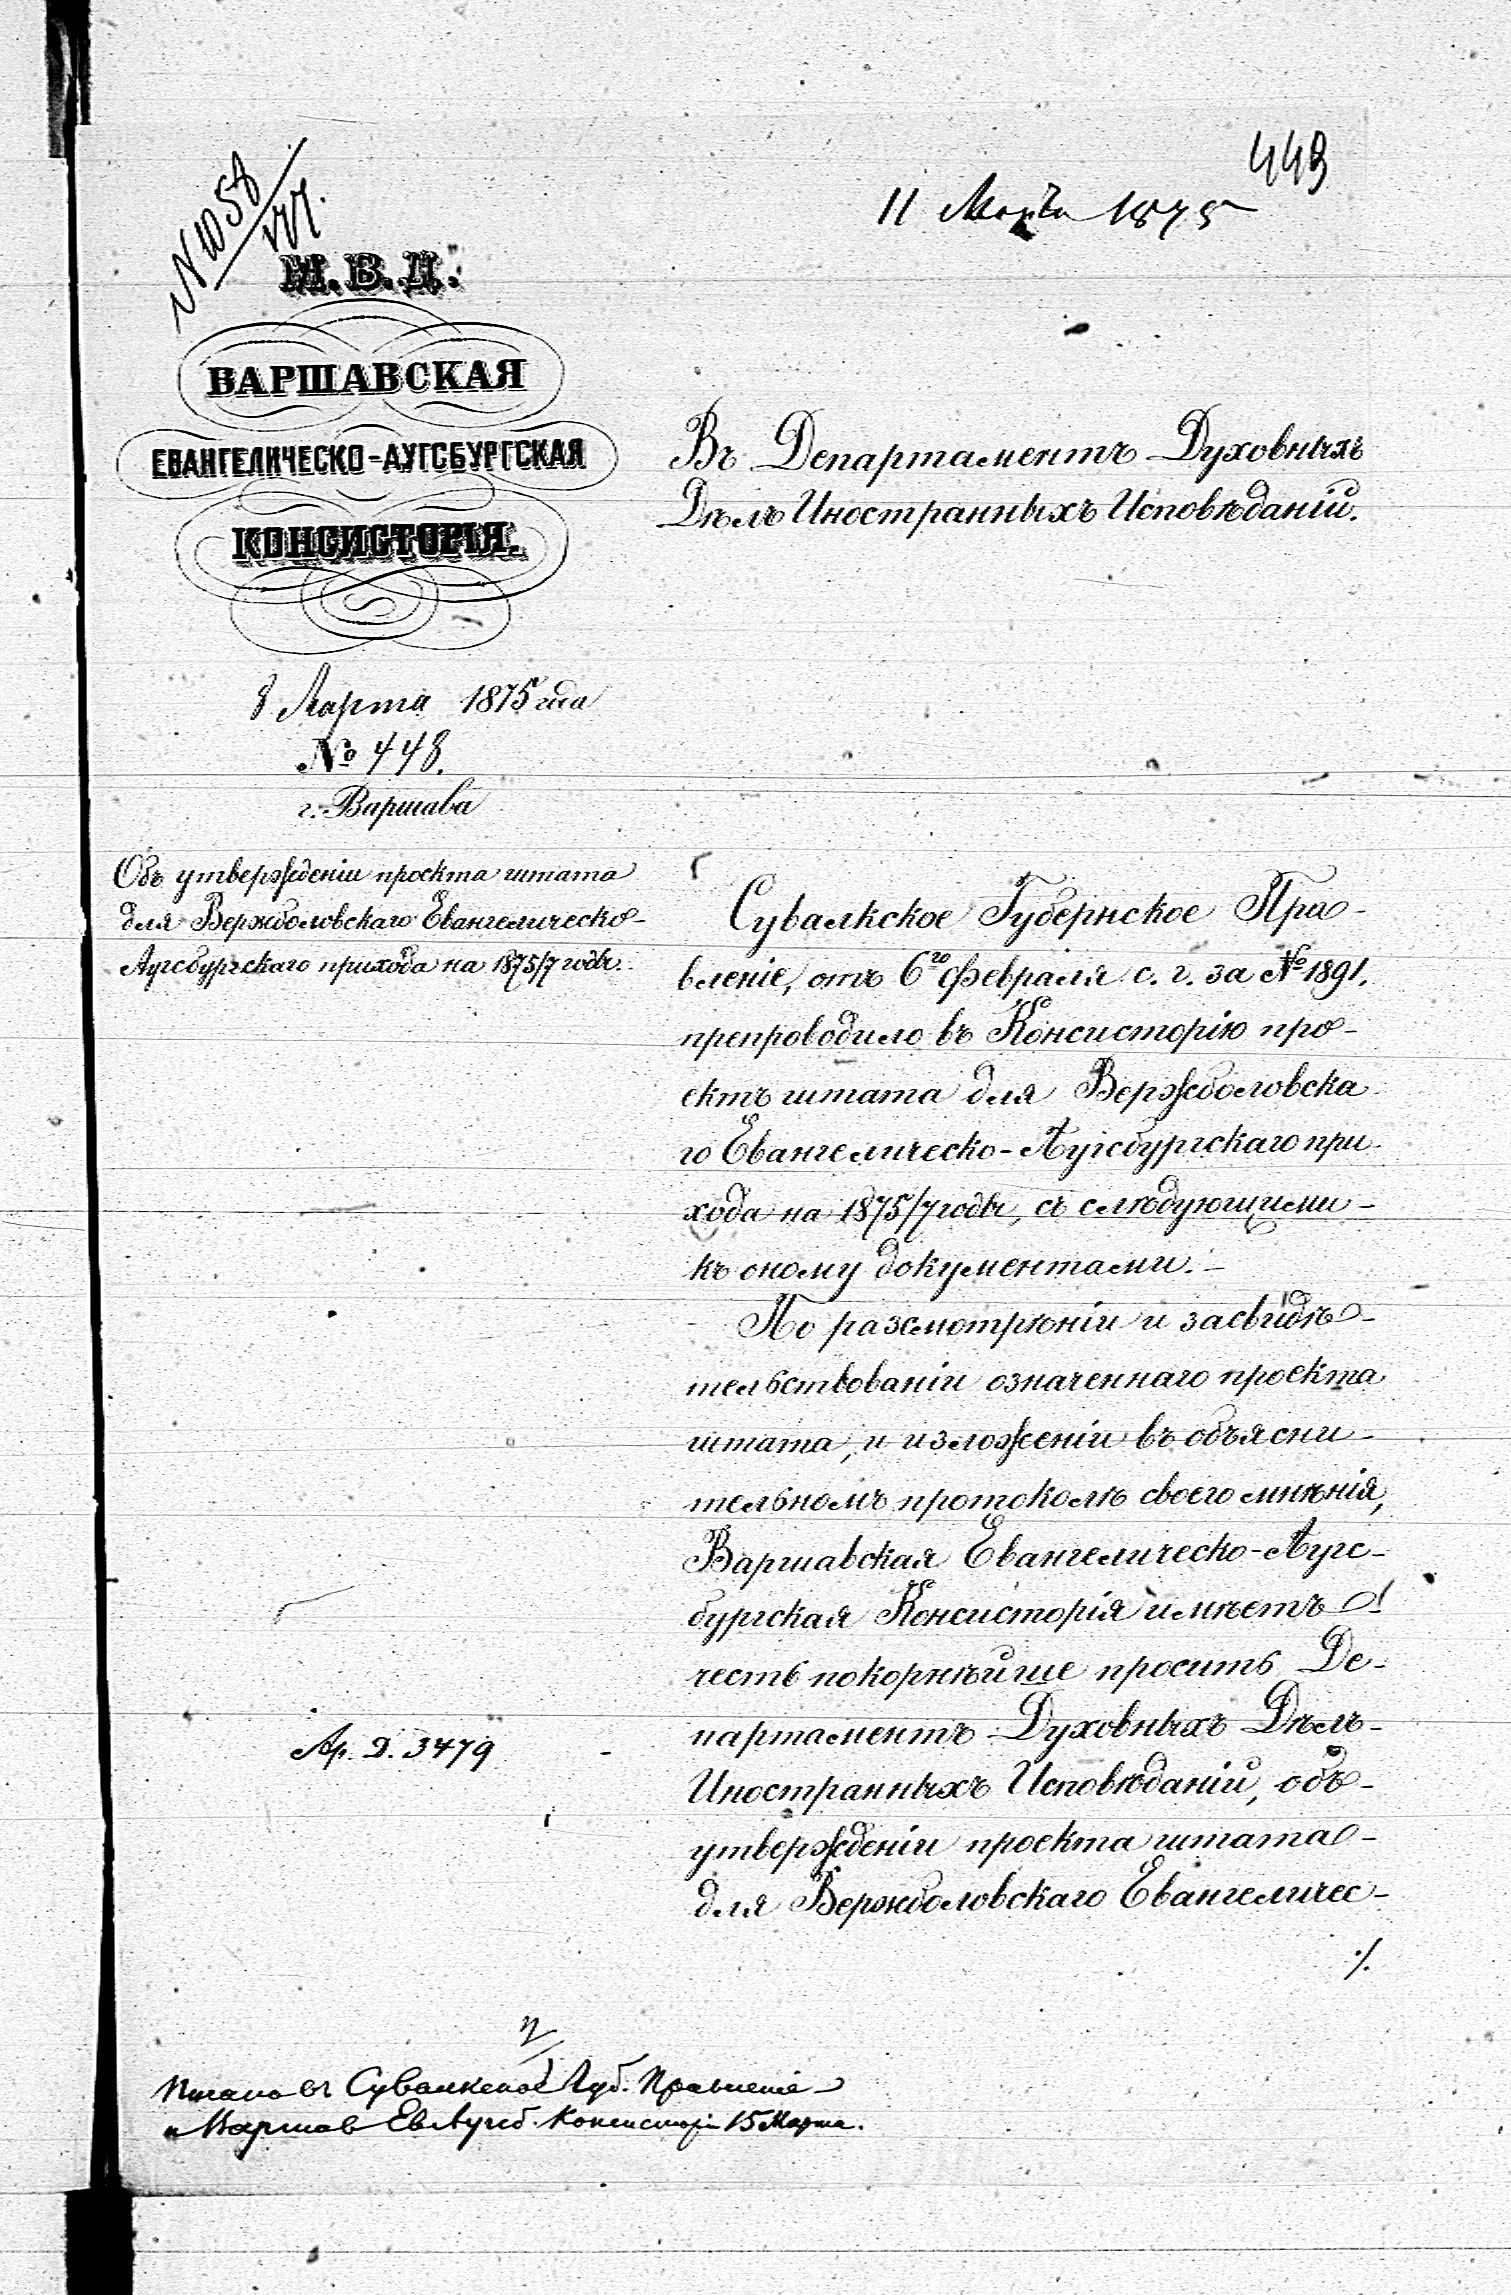 449
11 Марта 1875
N 1058
М.В.Д.
ВАРШАВСКАЯ
ЕВАНГЕЛИЧЕСКО-АУГСБУРГСКАЯ
КОНСИСТОРІЯ.
8 Марта 1875 года
№ 448.
г. Варшава
Объ утвержденіи проекта штата
для Вержболовскаго Евангелическо-
Аугсбургскаго прихода на 1875/7 годы.
Въ Департаментъ Духовныхъ
Дѣлъ Иностранныхъ Исповѣданій.
Сувалкское Губернское Пра-
вленіе, отъ 6го Февраля с. г. за № 1891.
препроводило въ Консисторію про-
ектъ штата для Вержболовска
го Евангелическо-Аугсбургскаго при
хода на 1875/7 годы, съ слѣдующими
къ оному документами.
По разсмотрѣніи и засвидѣ-
тельствованіи означеннаго проекта
штата, и изложеніи въ объясни-
тельномъ протоколѣ своего мнѣнія,
Варшавская Евангелическо-Аугс-
бургская Консисторія имѣетъ
честь покорнѣйше просить Де-
партаментъ Духовныхъ Дѣлъ
Иностранныхъ Исповѣданій, объ
утвержденіи проекта штата
для Вержболовскаго Евангеличес-
./.
Ар. Д. 3479
Писано въ Сувалкское Губ. Правленіе
и Варшав Ев Аугсб. Консисторі 15 Марта.